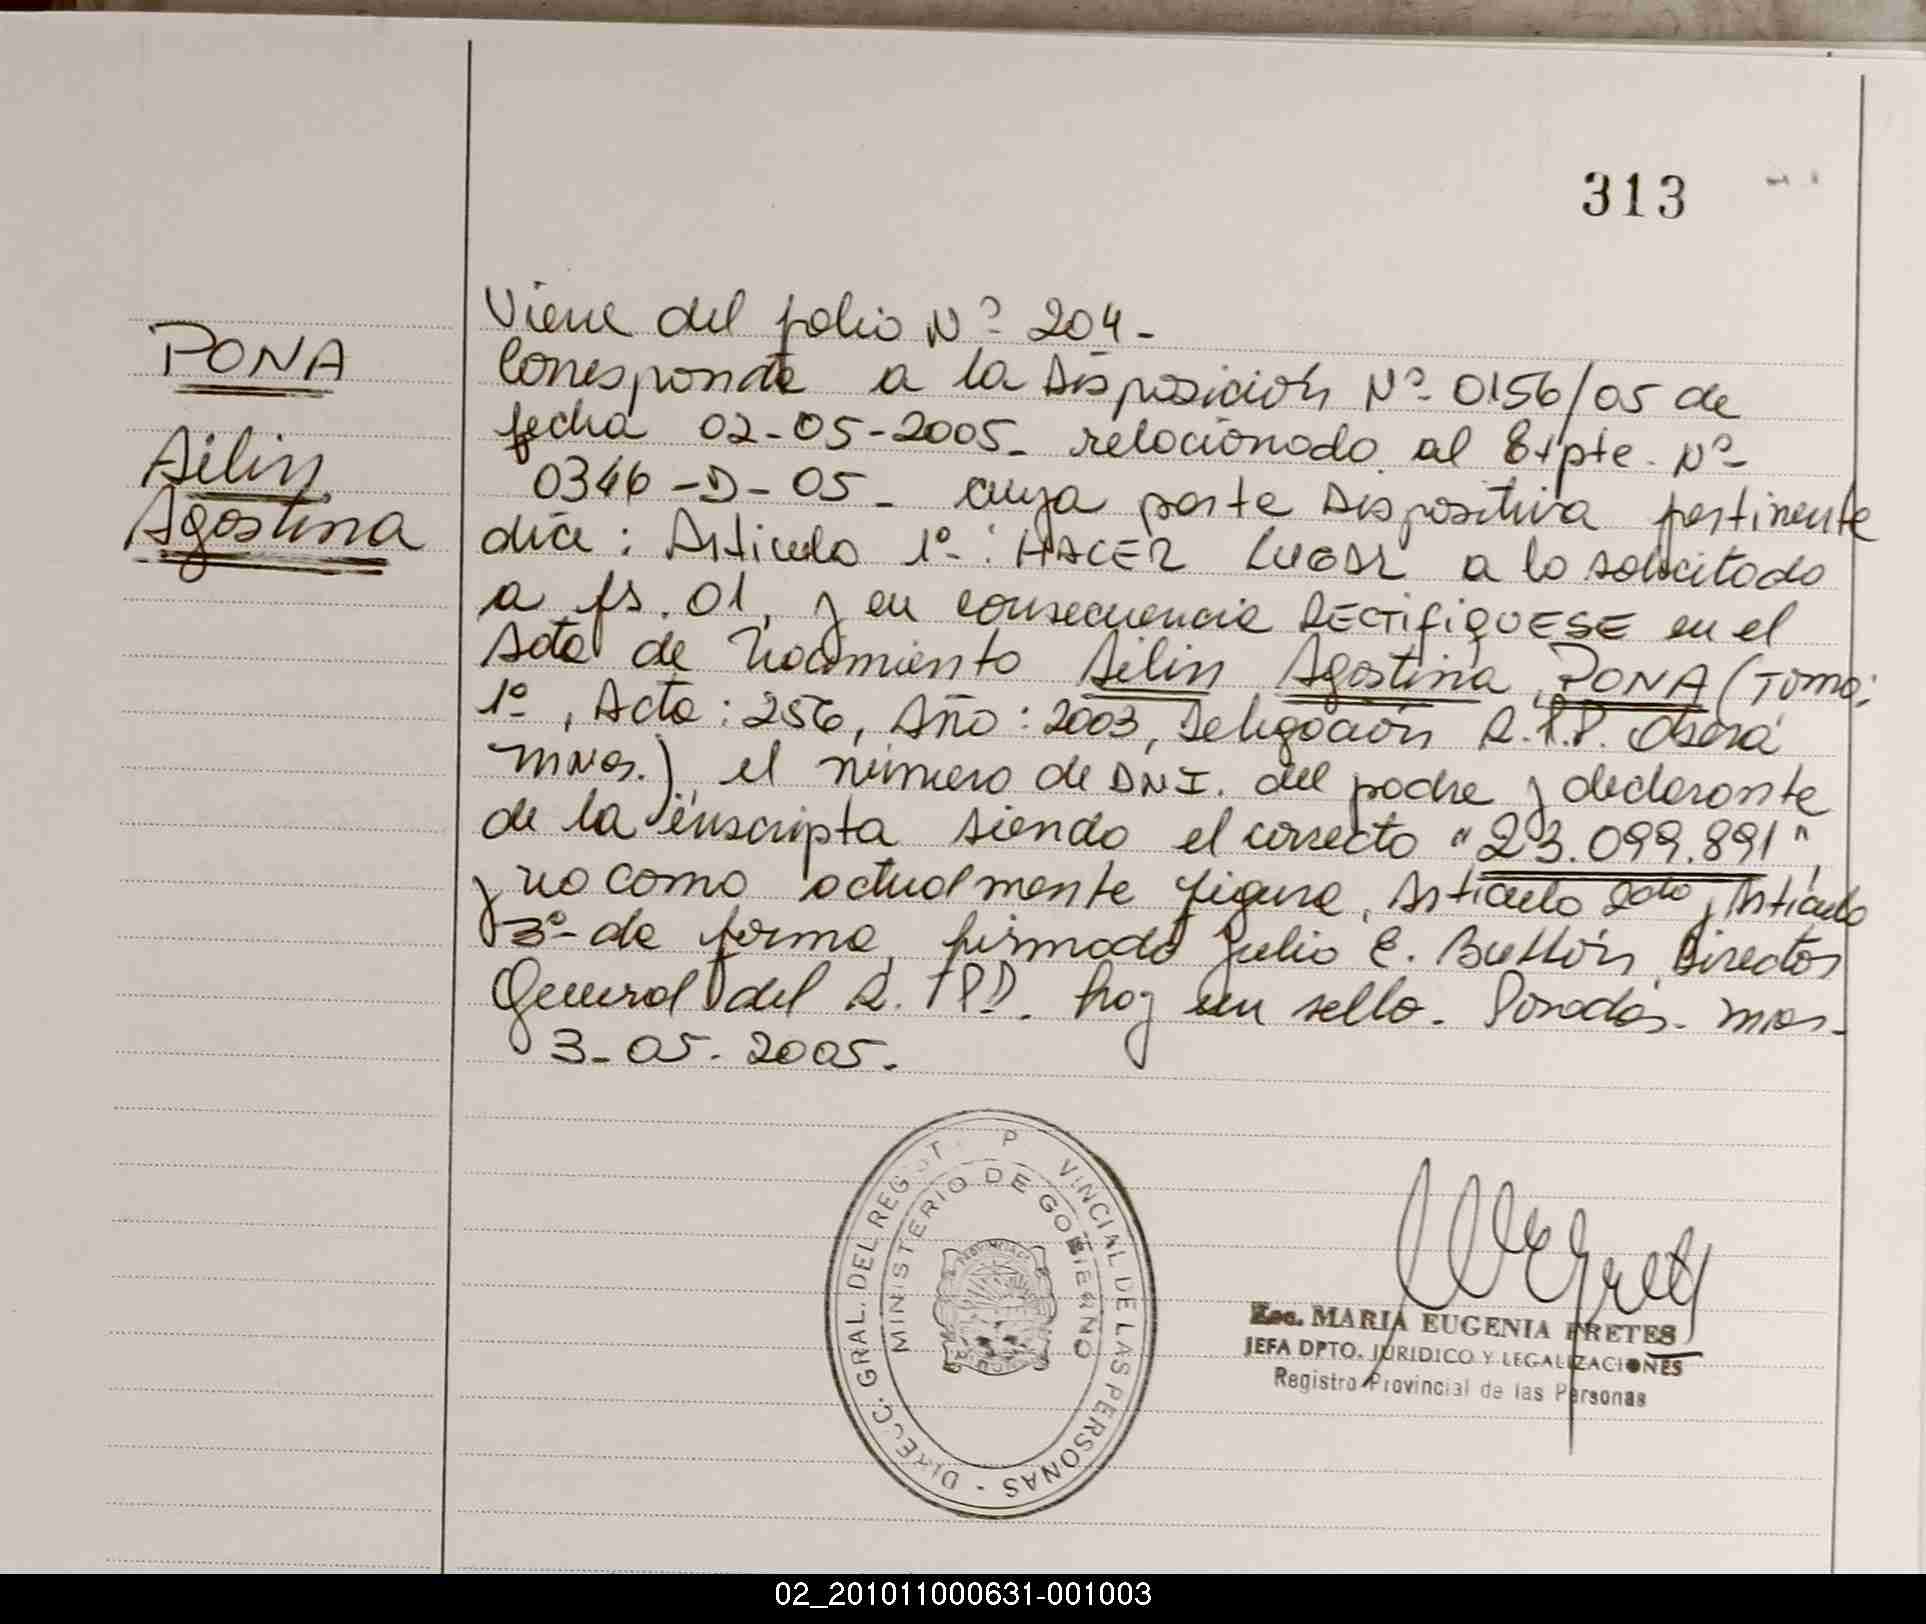 313
PONA
Ailin
Agostina
Viene del folio Nº 204-
Corresponde a la Disposición Nº 0156/05 de
fecha 02-05-2005- relacionado al Expte. Nº
0346-D-05- cuya parte Dispositiva pertinente
dice: Articulo 1º: HACER LUGAR a lo solicitado
a fs. 01, y en consecuencia RECTIFIQUESE en el
Acta de Nacimiento Ailin Agostina PONA (Tomo:
1º, Acta: 256, Año: 2003, Delegación R.P.P. Oberá
Mnes.) el número de DNI. del padre y declarante
de la inscripta siendo el correcto "23.099.891",
y no como actualmente figura, Articulo 2do y Articulo
3º de forma, firmado Julio E. Buttón Director
General del R.P.P. hay un sello. Posadas. Mnes-
3-05-2005.
DIRECC. GRAL. DEL REGIST. P VINCIAL DE LAS PERSONAS -
MINISTERIO DE GOBIERNO
Esc. MARIA EUGENIA PRETES
JEFA DPTO. JURIDICO Y LEGALIZACIONES
Registro Provincial de las Personas
02_201011000631-001003